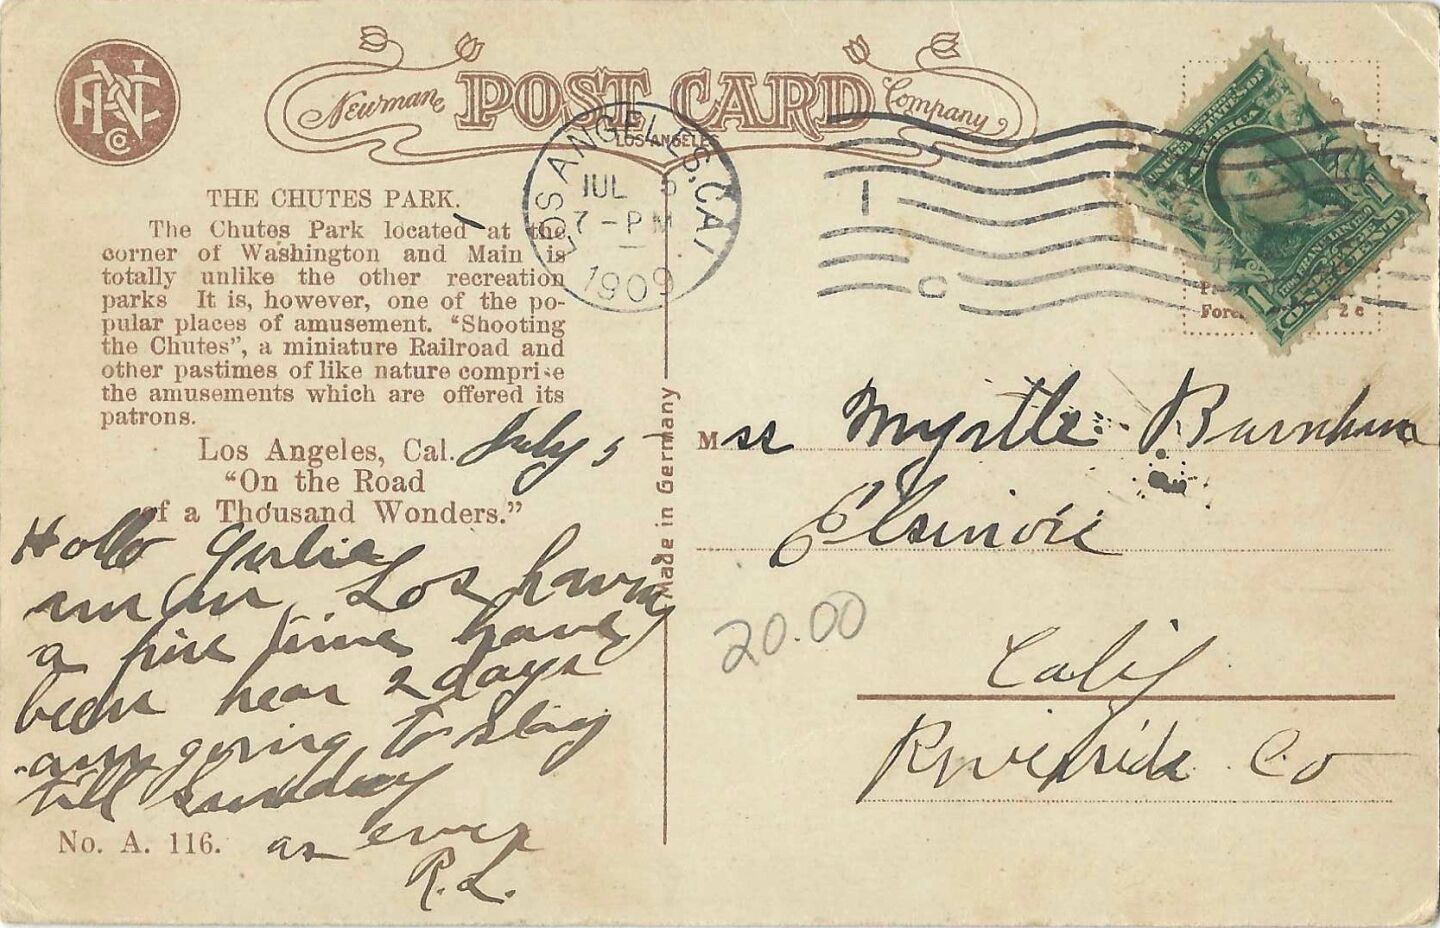 Newman POST CARD Company
LOS ANGELES
LOS ANGELES, CAL
JUL 5
7-PM
1909
THE CHUTES PARK.
The Chutes Park located at the
corner of Washington and Main is
totally unlike the other recreation
parks It is, however, one of the po-
pular places of amusement. "Shooting
the Chutes", a miniature Railroad and
other pastimes of like nature comprise
the amusements which are offered its
patrons.
Los Angeles, Cal. July 5
"On the Road
of a Thousand Wonders."
Hello
am in Los having
a fine time have
been hear 2 days
am going to stay
till Sunday
as ever
R. L.
No. A. 116.
Made in Germany
1
2 c
Mss Myrtle Burnham
Elsinore
Calif
Riverside Co
20.00